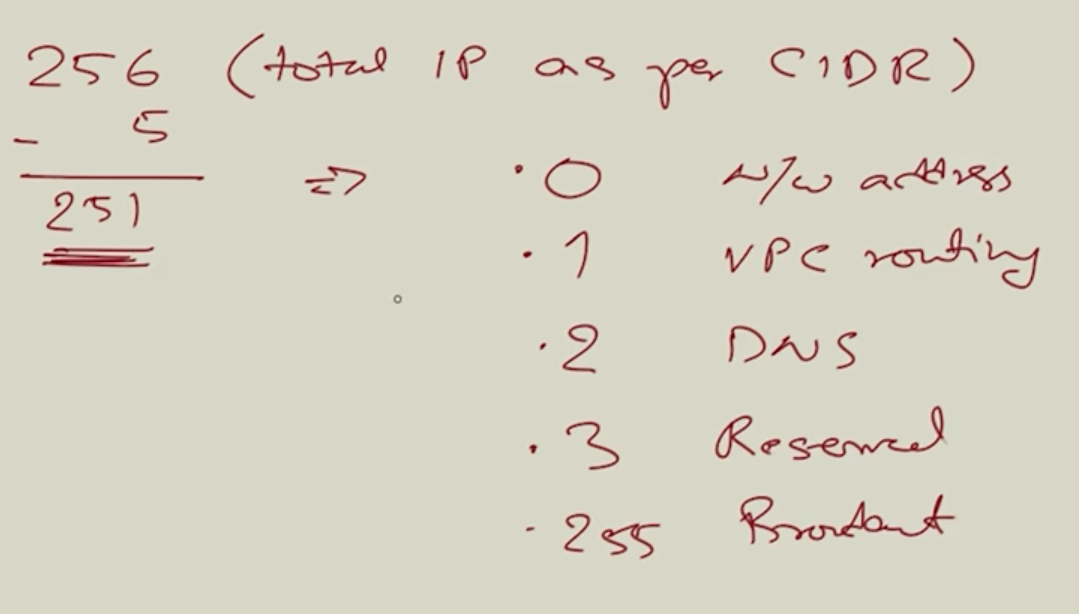 256 (total IP as per CIDR)
- 5
251 => .0 N/w address
.1 VPC routing
.2 DNS
.3 Reserved
.255 Broadcast